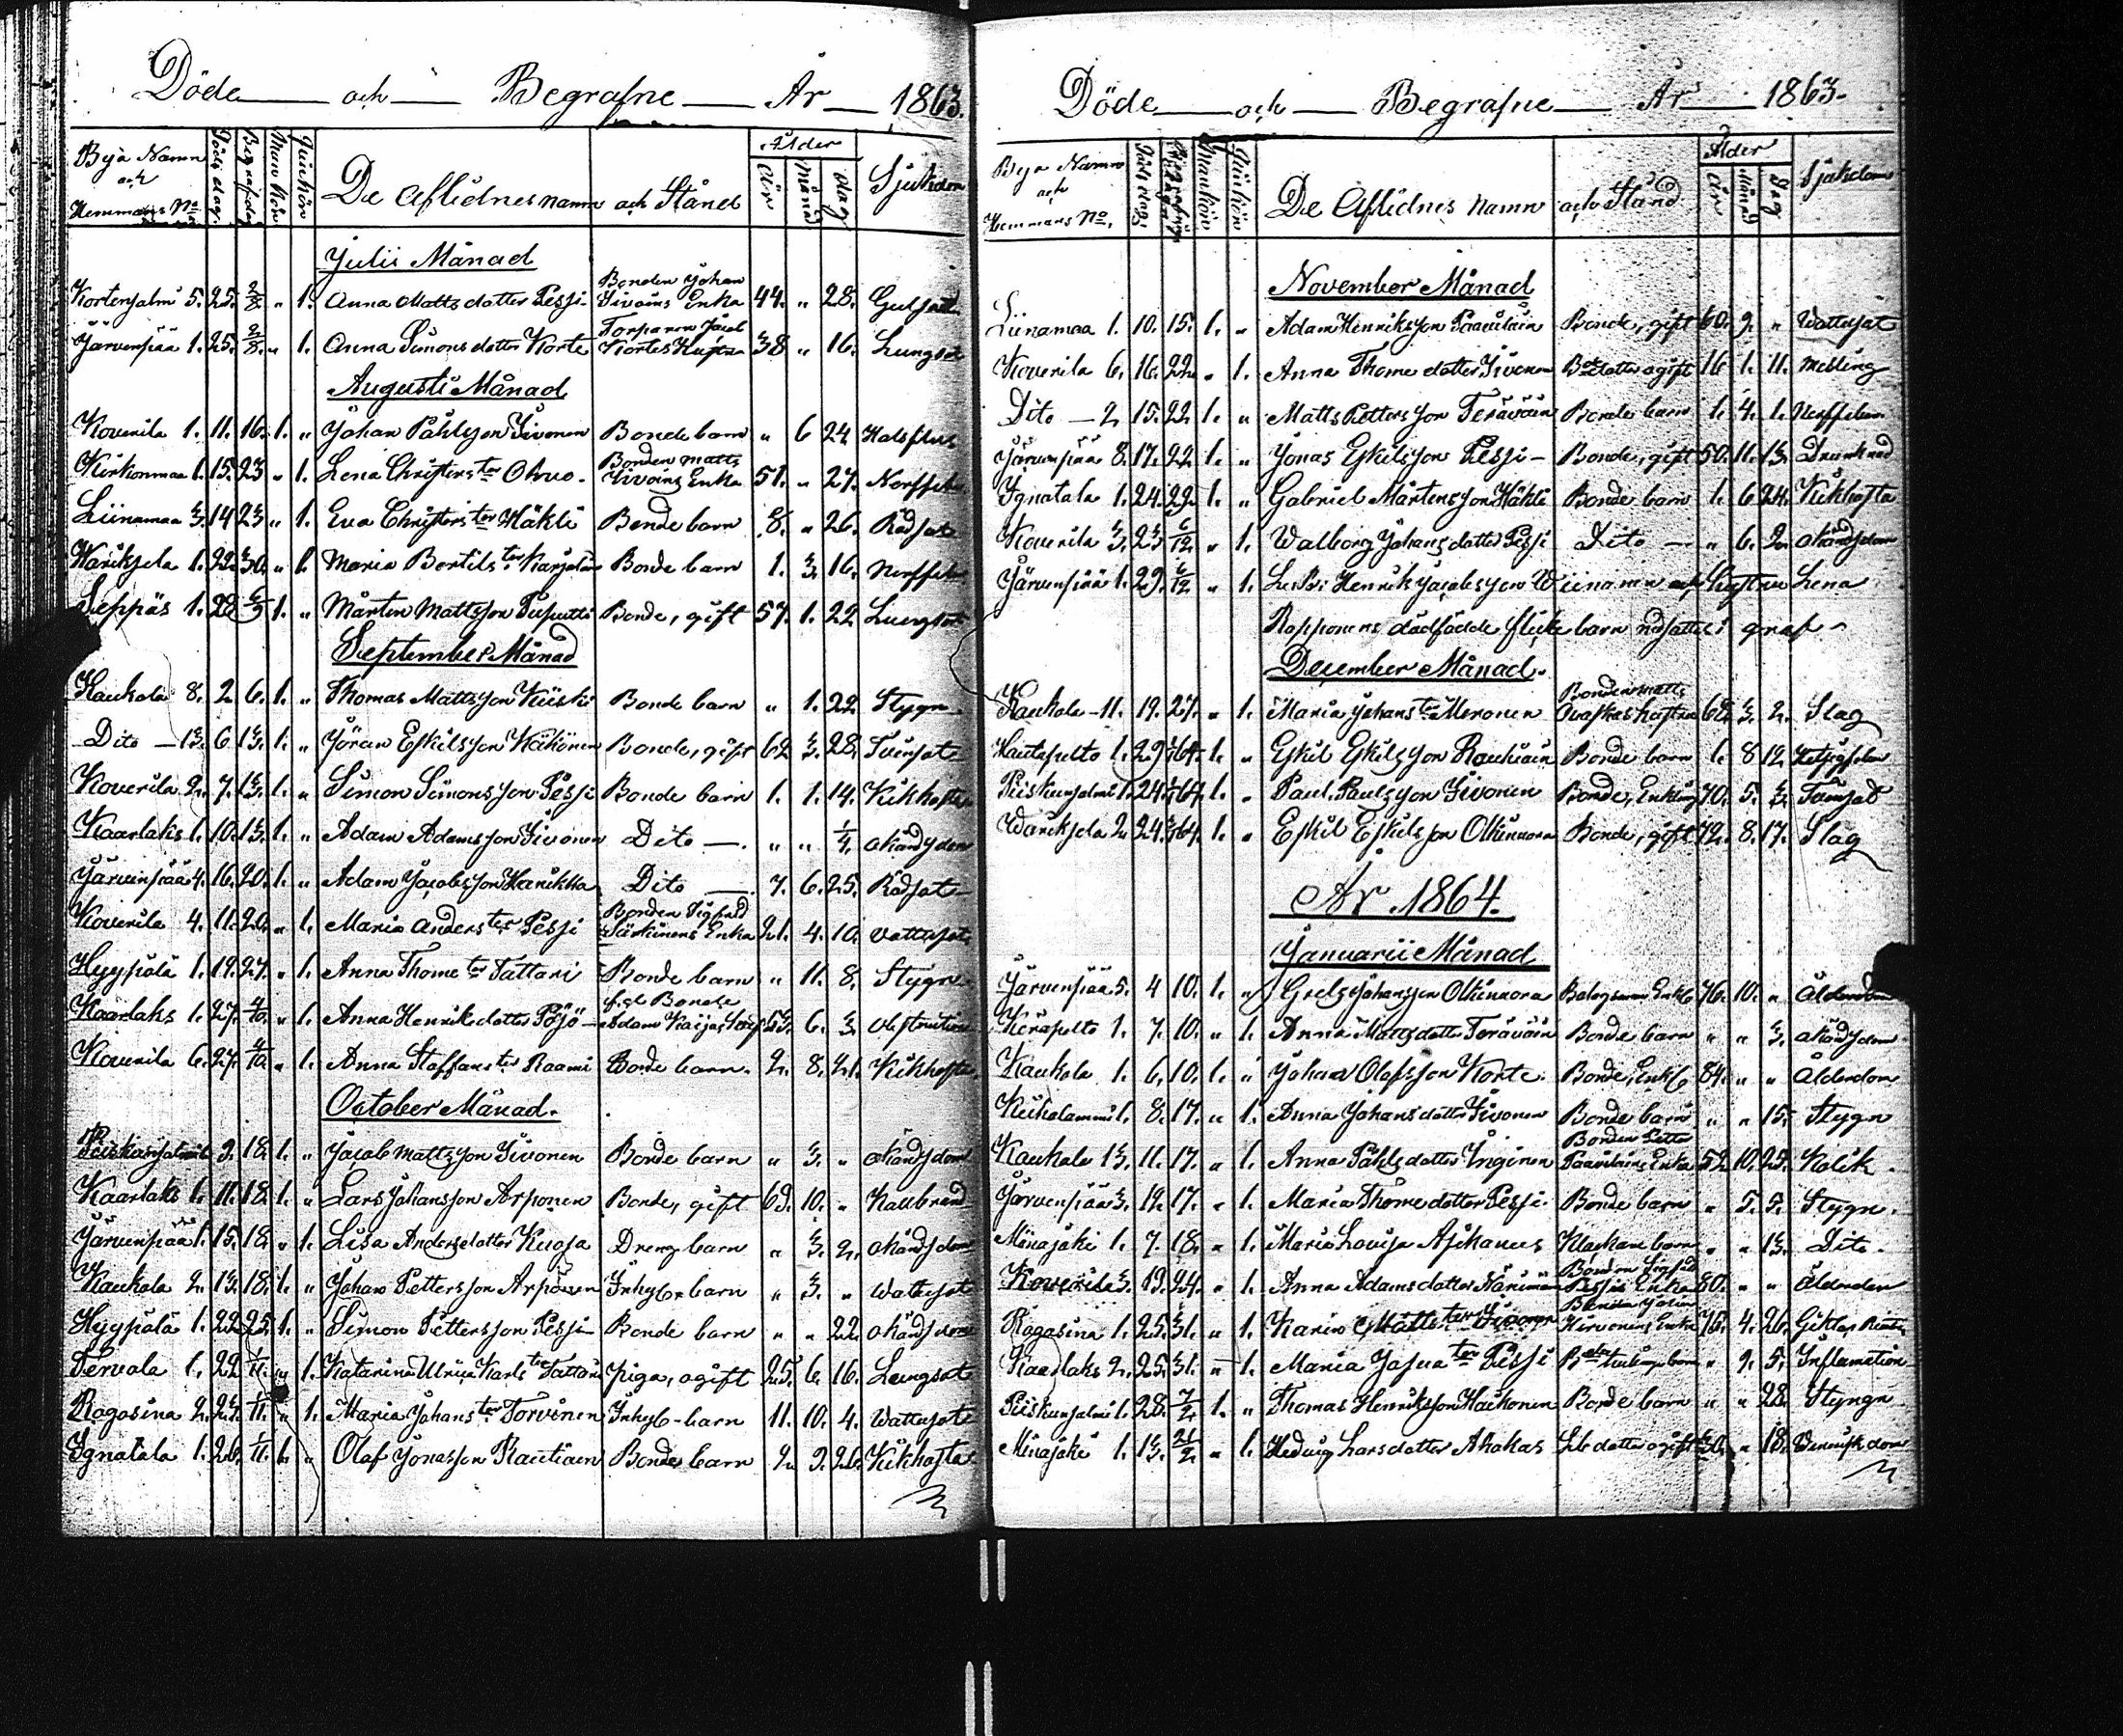 Döde och Begrafne År 1863.
Byä Namn och Hemmans No Döds dag. Begrafn.dag Man Kön Quinkön De Aflidnes namn och Stånd Ålder År Månad dag Sjukdom
Julii Månad
Bonden Johan
Kortensalmi 5. 25. 2/8. " 1. Anna Matts dotter Pessi Sivoins Enka 44. " 28. Gulsot
Torparen Jacob
Järvenpää 1. 25. 2/8. " 1. Anna Simons dotter Korte Kortes Hustru 38 " 16. Lungsot
Augusti Månad
Koverila 1. 11. 16. 1. " Johan Påhlsson Sivonen Bonde barn " 6 24 Halsfluss
Bonden Matts
Kirkonmaa 1. 15. 23 " 1. Lena Christers ter Ohvo. Sivoins Enka 51. " 27. Nerffeber
Liinamaa 3. 14 23 " 1. Eva Christers ter Häkli Bonde barn 8. " 26. Rödsot
Variksela 1. 22. 30. " 1. Maria Bertils ter Karjalain Bonde barn 1. 3. 16. Nerffeber
Seppäs 1. 28 1. " Mårten Mattsson Puputti Bonde, gift 57. 1. 22 Lungsot
September Månad
Kaukola 8. 2 6. 1. " Thomas Mattsson Kiiski Bonde barn " 1. 22. Stygn
Dito 13. 6 13. 1. " Jöran Eskilsson Häkönen Bonde, gift 62 3. 28. Tvinsot
Koverila 2. 7. 13. 1. " Simon Simonsson Pessi Bonde barn 1. 1. 14. Kikhosta
Kaarlaks 1. 10. 13. 1. " Adam Adamsson Sivonen Dito " " 1/4. okänd sjdom
Järvenpää 4. 16. 20. 1. " Adam Jacobsson Hanikka Dito 7. 6. 25. Rödsot
Bonden Sigfrid
Koverila 4. 11. 20. " 1. Maria Anders ter Pessi Särkinens Enka 21. 4. 10. vattusot
Hyypälä 1. 19. 27. " 1. Anna Thome ter Tattari Bonde barn " 11. 8. Stygn
f.d. Bonde
Kaarlaks 1. 27. 4/10. " 1. Anna Henriksdotter Pöjö Adam Kaijas 53. 6. 3. obstruction
Koverila 6. 27. 4/10. " 1. Anna Staffans ter Raami Bonde barn. 2. 8. 21. Kikhosta
October Månad.
Piiskunsalmi 1. 9. 18. 1. " Jacob Mattsson Sivonen Bonde barn " 3. " okänd sjdom
Kaarlaks 1. 11. 18. 1. " Lars Johansson Arponen Bonde, gift 63. 10. " Kallbrand
Järvenpää 1. 15. 18. " 1. Lisa Andersdotter Kuosa Dreng barn " 3. 2. okänd sjdom
Kaukola 2. 13. 18. 1. " Johan Pettersson Arponen Inhys barn " 3. " Wattusot
Hyypälä 1. 22. 25. 1. " Simon Pettersson Pessi Bonde barn " " 22. okänd sjdom
Tervola 1. 22 1/11. " 1. Katarina Ulrica Karls ter Tattari piga, ogift 25. 6. 16. Lungsot
Rogosina 2. 24. 1/11. " 1. Maria Johans ter Torvinen Inhys-barn 11. 10. 4. Wattusot
Ignatala 1. 26. 1/11. 1. " Olof Jonasson Rautiain Bonde barn 2 9. 26. Kikhosta
Döde och Begrafne År 1863.
Bya Namn och Hemmans No. Döds dag. Begrafnings Mankön Qvinkön De Aflidnes Namn och Stånd Ålder År Månad Dag Sjukdom
November Månad
Liinamaa 1. 10. 15. 1. " Adam Henriksson Paavilain Bonde, gift 60. 9. " Wattusot
Koverila 6. 16. 22. " 1. Anna Thome dotter Sivonen Bdotter ogift 16 1. 11. Messling
Dito 2 15. 22 1. " Matts Pettersson Teräväin Bonde barn 1. 4. 1. Nerffeber
Järvenpää 8. 17. 22 1. " Jonas Eskilsson Pessi Bonde, gift 50. 11. 13. Drunknad
Ignatala 1. 24. 29. 1. " Gabriel Mårtensson Häkli Bonde barn 1. 6 24. Kikhosta
Koverila 3. 23 6/12. " 1. Walborg Johansdotter Pessi Dito " 6. 2. okänd sjdom
Järvenpää 1. 29. 6/12. " 1. Henrik Jacobsson Wiinamen och Hustru Lena
Rapponens dödfödde flicke barn nedsattes i graf
December Månad.
Bonden Matts
Kaukola 11. 19. 27. " 1. Maria Johans ter Meronen hustru 68. 3. 2. Slag
Hautapelto 1. 29 1. " Eskil Eskilsson Raukiain Bonde barn 1. 8 12
Piiskunsalmi 1. 24. 1. " Paul Paulsson Sivonen Bonde, Enkling 70. 5. 3.
Wariksela 2. 24. 1. " Eskil Eskilsson Olkinuora Bonde, gift 72. 8. 17. Slag
År 1864.
Januarii Månad
Järvenpää 5. 4 10. 1. " Grels Johansson Olkinuora Enkl 76. 10. " Ålderdom
Keräpelto 1. 7. 10. " 1. Anna Mattsdotter Teräväin Bonde barn " " 3. okänd sjdom
Kaukola 1. 6. 10. 1. " Johan Olofsson Korte. Bonde, Enkl 84. " " Ålderdom
Kiiholammi 1. 8. 17. " 1. Anna Johansdotter Sivonen Bonde barn " " 15. Stygn
Bonden Petter
Kaukola 13. 11. 17. " 1. Anna Påhlsdotter Inginen Paavilains Enka 52 10. 25. Kolik.
Järvenpää 3. 12. 17. " 1. Maria Thome dotter Pessi Bonde barn " 5. 5. Stygn.
Miinajoki 1. 7. 18. " 1. Maria Lovisa Asikanus Klockare barn " " 13. Dito.
Bonden Sigfrid
Koverila 3. 19. 24. " 1. Anna Adamsdotter Närimän Pessis Enka 80. " " Ålderdom
Rogosina 1. 25. 31. " 1. Karin Matts ter Sivonen Hirvonens Enka 75. 4. 26.
Kaarlaks 2. 25. 31. " 1. Maria Josua ter Pessi barn " 9. 5. Inflamation
Piiskunsalmi 1. 28. 7/2. 1. " Thomas Henriksson Haikonen Bonde barn " " 28. Styngn
Miinajoki 1. 13. 21/2. " 1. Hedvig Larsdotter Ahokas dotter ogift 30. " 18. Venerisk dom